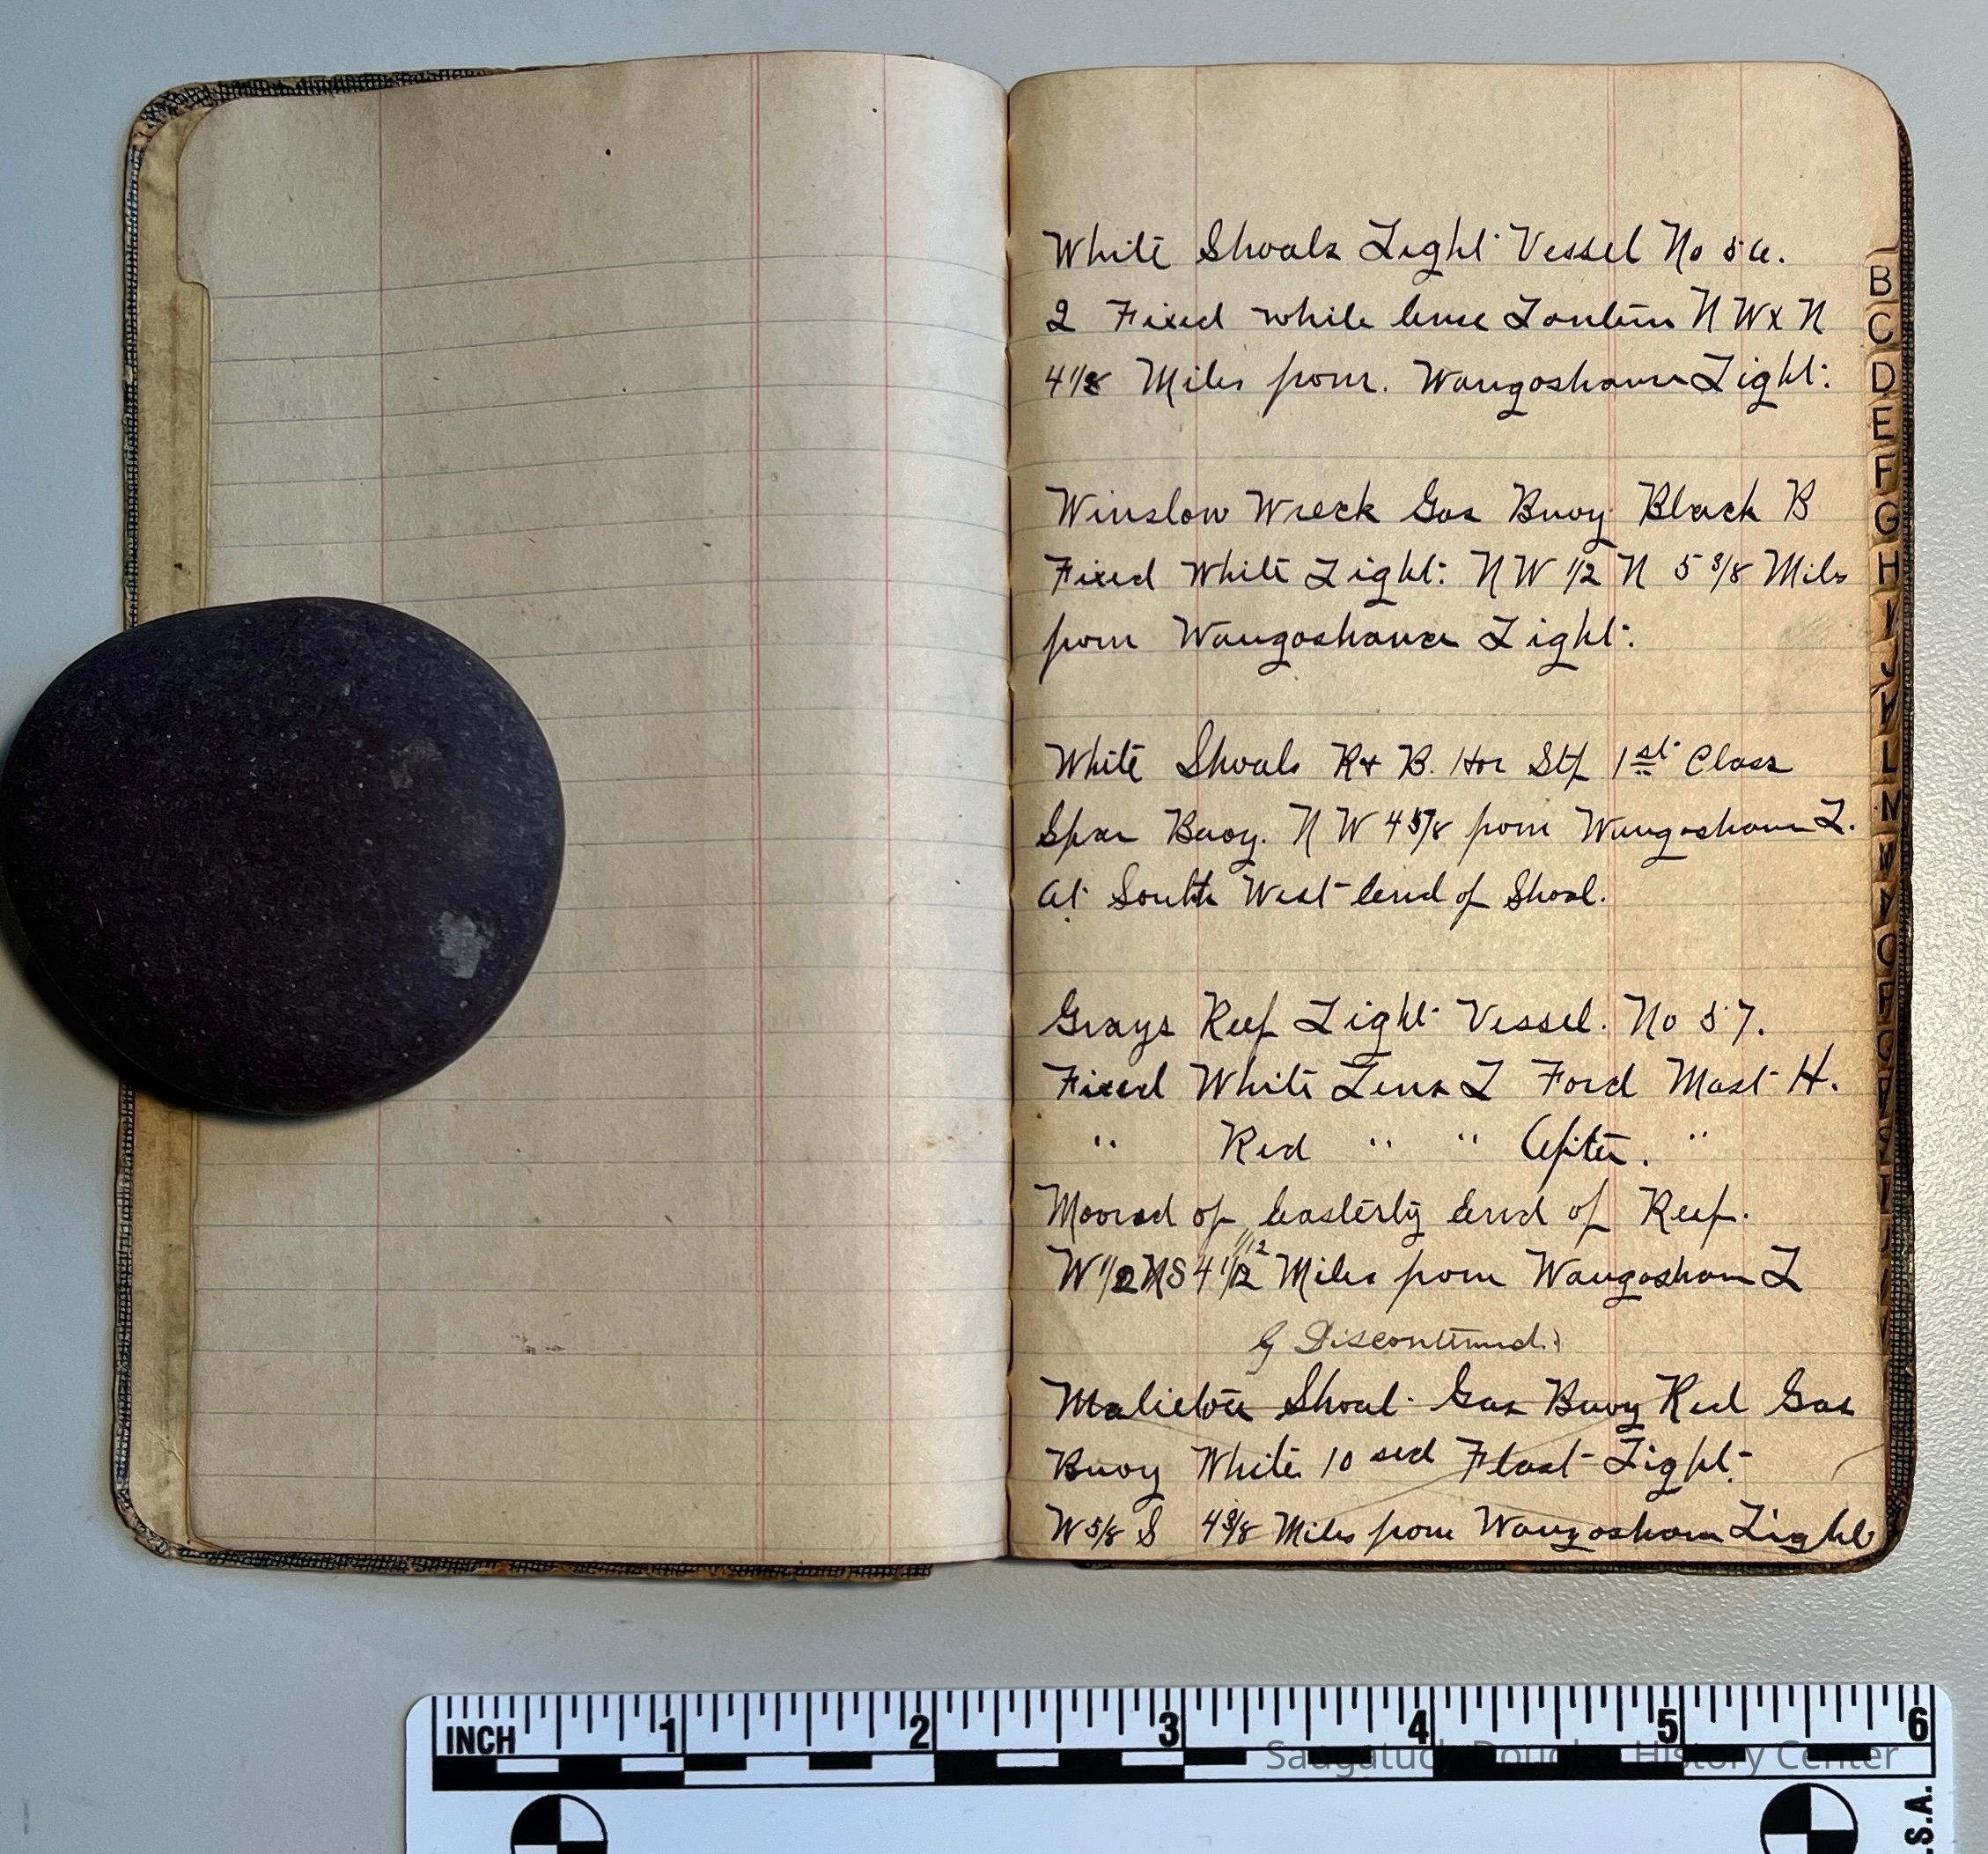 White Shoals Light Vessel No 56.
2 Fixed white lense Lantern N W x N
4 1/8 Miles from. Waugoshance Light.
Winslow Wreck Gas Buoy Black B
Fixed White Light. N W 1/2 N 5 3/8 Mils
from Waugoshance Light.
White Shoals R + B. Hor Stp 1st Class
Spar Buoy. N W 4 5/8 from Waugosham L.
At South West end of Shoal.
Grays Reef Light Vessel. No 57.
Fixed White Lens L Ford Mast H.
" Red " " After. "
Moored of easterly end of Reef.
W 1/2 S 4 1/12 Miles from Waugosham L
Discontinued.
Shoal Gas Buoy Red Gas
Buoy White 10 sed Flast Light.
W 5/8 S 4 3/8 Miles from Waugosham Light
B
C
D
E
F
G
H
I
J
K
L
M
N
O
P
Q
S
T
INCH 1 2 3 4 5 6
Saugatuck-Douglas History Center
S.A.